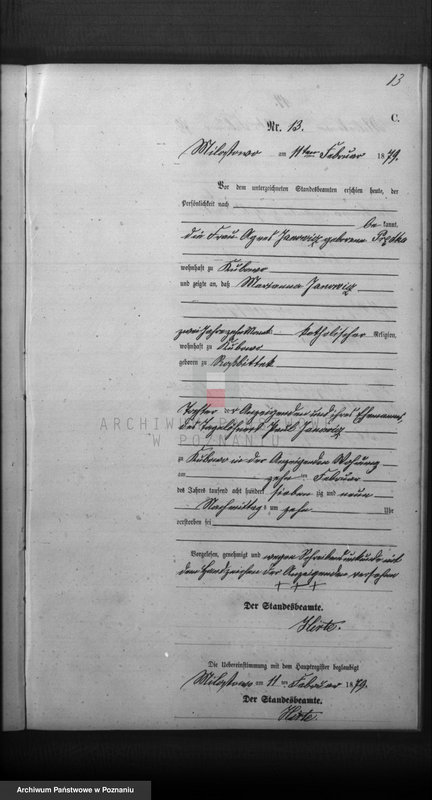 13
C.
Nr. 13.
Miloslowo am 11ten Februar 1879.
Vor dem unterzeichneten Standesbeamten erschien heute, der
Persönlichkeit nach
be kannt,
die Frau Agnes Janowicz geborene
wohnhaft zu Kubowo
und zeigte an, daß Marianna Janowicz
zwei Jahre alt katholischer Religion,
wohnhaft zu Kubowo
geboren zu
Tochter der Anzeigenden und ihres Ehemanns,
des Tagelöhners Paul Janowicz
zu Kubowo in der Anzeigenden Wohung
am zehn ten Februar
des Jahres tausend acht hundert sieben zig und neun
Nachmittags um zehn Uhr
verstorben sei
Vorgelesen, genehmigt und wegen Schreibensunkunde mit
dem Handzeichen der Anzeigenden versehen
+ + +
Der Standesbeamte.
Hirte.
Die Uebereinstimmung mit dem Hauptregister beglaubigt
Miloslowo am 11 ten Februar 1879.
Der Standesbeamte.
Hirte.
ARCHIWUM PAŃSTWOWE
W POZNANIU
Archiwum Państwowe w Poznaniu